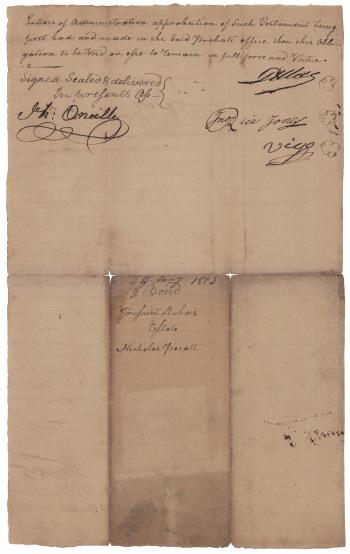 Letters of Administration approbation of Such Testament being
first had and made in the Said Probate office then this obli
gation to be Void or else to remain in full force and Virtue.
Signed Sealed & delivered
In presents of
Jno: Oneille
Jno Rice Jones
Vigo
1803
Bond
Toussaint Dubois
Estate
Nicholas